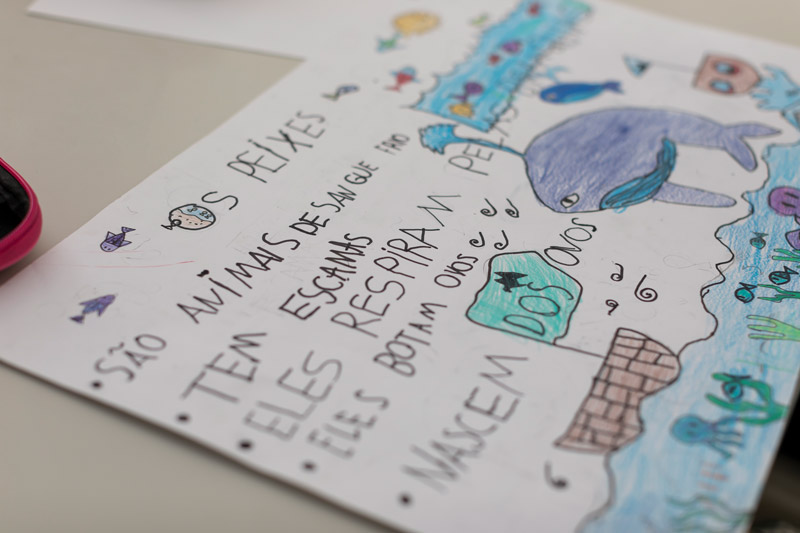 OS PEIXES
• SÃO ANIMAIS DE SANGUE FRIO
• TEM ESCAMAS
• ELES RESPIRAM PELAS
• ELES BOTAM OVOS
• NASCEM DOS OVOS